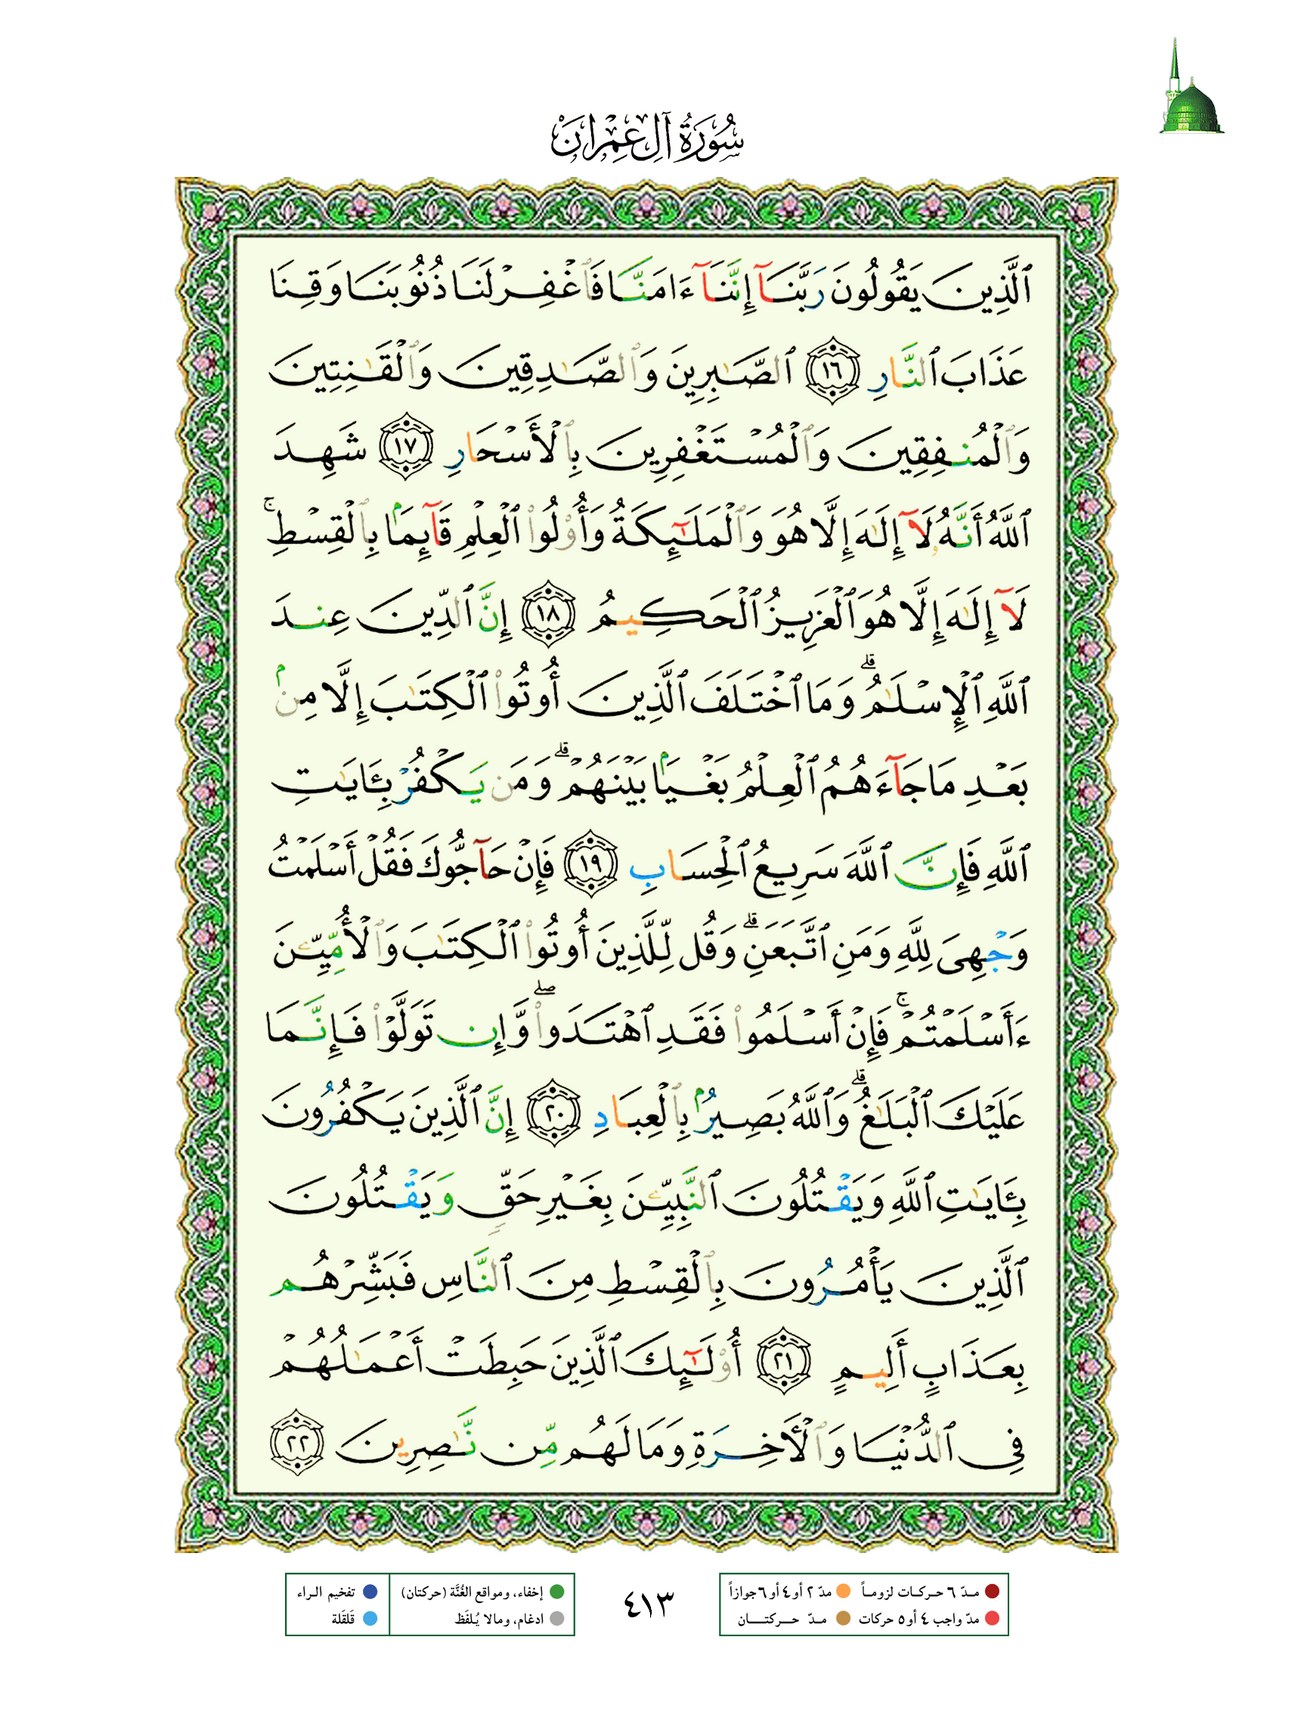 سُورَةُ آلِ عِمْرَانَ
ٱلَّذِينَ يَقُولُونَ رَبَّنَآ إِنَّنَآ ءَامَنَّا فَٱغْفِرْ لَنَا ذُنُوبَنَا وَقِنَا
عَذَابَ ٱلنَّارِ ١٦ ٱلصَّٰبِرِينَ وَٱلصَّٰدِقِينَ وَٱلْقَٰنِتِينَ
وَٱلْمُنفِقِينَ وَٱلْمُسْتَغْفِرِينَ بِٱلْأَسْحَارِ ١٧ شَهِدَ
ٱللَّهُ أَنَّهُۥ لَآ إِلَٰهَ إِلَّا هُوَ وَٱلْمَلَٰٓئِكَةُ وَأُو۟لُوا۟ ٱلْعِلْمِ قَآئِمَۢا بِٱلْقِسْطِ ۚ
لَآ إِلَٰهَ إِلَّا هُوَ ٱلْعَزِيزُ ٱلْحَكِيمُ ١٨ إِنَّ ٱلدِّينَ عِندَ
ٱللَّهِ ٱلْإِسْلَٰمُ ۗ وَمَا ٱخْتَلَفَ ٱلَّذِينَ أُوتُوا۟ ٱلْكِتَٰبَ إِلَّا مِنۢ
بَعْدِ مَا جَآءَهُمُ ٱلْعِلْمُ بَغْيَۢا بَيْنَهُمْ ۗ وَمَن يَكْفُرْ بِـَٔايَٰتِ
ٱللَّهِ فَإِنَّ ٱللَّهَ سَرِيعُ ٱلْحِسَابِ ١٩ فَإِنْ حَآجُّوكَ فَقُلْ أَسْلَمْتُ
وَجْهِىَ لِلَّهِ وَمَنِ ٱتَّبَعَنِ ۗ وَقُل لِّلَّذِينَ أُوتُوا۟ ٱلْكِتَٰبَ وَٱلْأُمِّيِّـۧنَ
ءَأَسْلَمْتُمْ ۚ فَإِنْ أَسْلَمُوا۟ فَقَدِ ٱهْتَدَوا۟ ۖ وَّإِن تَوَلَّوْا۟ فَإِنَّمَا
عَلَيْكَ ٱلْبَلَٰغُ ۗ وَٱللَّهُ بَصِيرٌۢ بِٱلْعِبَادِ ٢٠ إِنَّ ٱلَّذِينَ يَكْفُرُونَ
بِـَٔايَٰتِ ٱللَّهِ وَيَقْتُلُونَ ٱلنَّبِيِّـۧنَ بِغَيْرِ حَقٍّ وَيَقْتُلُونَ
ٱلَّذِينَ يَأْمُرُونَ بِٱلْقِسْطِ مِنَ ٱلنَّاسِ فَبَشِّرْهُم
بِعَذَابٍ أَلِيمٍ ٢١ أُو۟لَٰٓئِكَ ٱلَّذِينَ حَبِطَتْ أَعْمَٰلُهُمْ
فِى ٱلدُّنْيَا وَٱلْـَٔاخِرَةِ وَمَا لَهُم مِّن نَّٰصِرِينَ ٢٢
مدّ ٦ حركات لزوماً مدّ ٢ أو ٤ أو ٦ جوازاً
مدّ واجب ٤ أو ٥ حركات مدّ حركتان
٤١٣
إخفاء، ومواقع الغُنَّة (حركتان) تفخيم الراء
ادغام، ومالا يُلفَظ قلقَلة